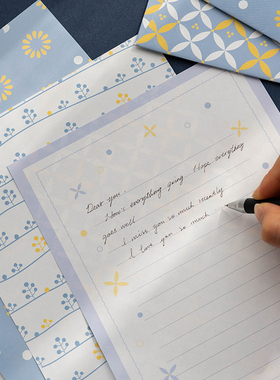 Dear you.
How's everything going. Hope everything
goes well.
I miss you so much recently
I love you so much.